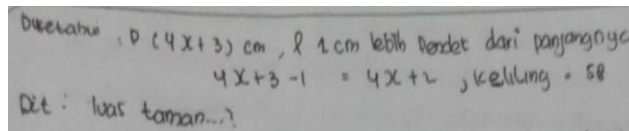 Diketahui : P (4x+3) cm, l 1 cm lebih Pendek dari panjangnya
4x+3-1 = 4x+2, keliling = 58
Dit : luas taman...?